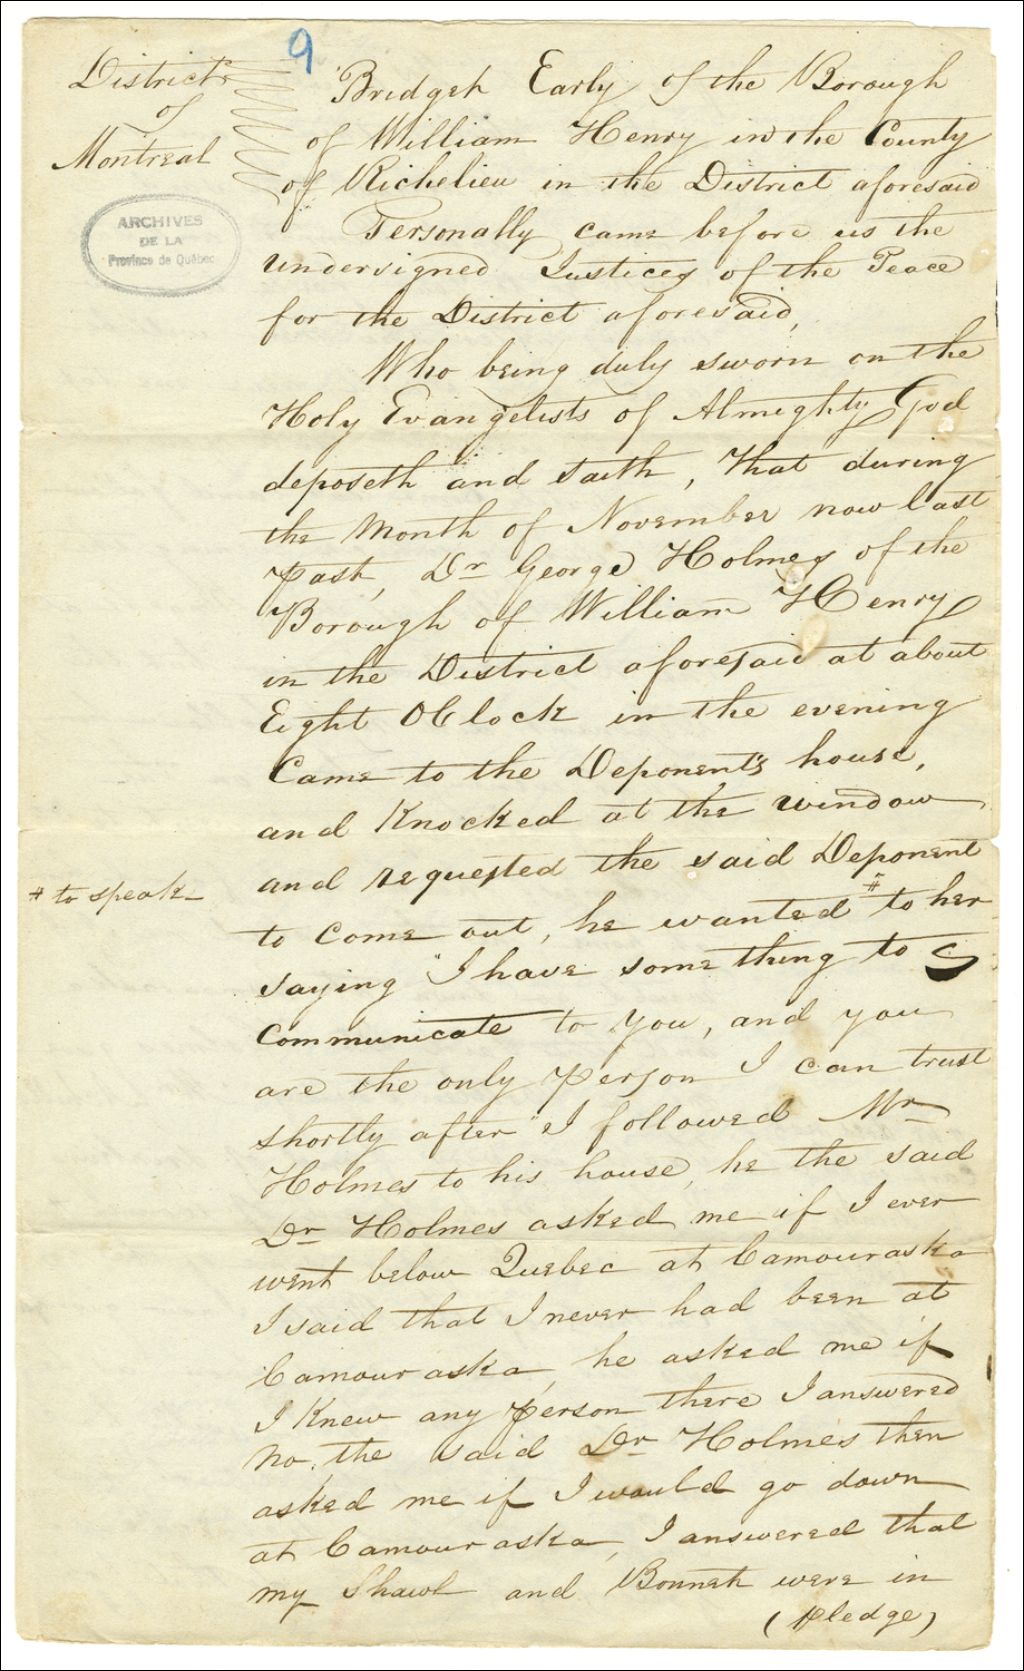 9
District
of
Montreal
ARCHIVES
DE LA
Province de Québec
Bridget Early of the Borough
of William Henry in the County
of Richelieu in the District aforesaid
Personally came before us the
undersigned Justices of the Peace
for the District aforesaid,
Who being duly sworn on the
Holy Evangelists of Almighty God
deposeth and saith, That during
the Month of November now last
past, Dr George Holmes of the
Borough of William Henry
in the District aforesaid at about
Eight OClock in the evening
Came to the Deponent's house,
and Knocked at the window
and requested the said Deponent
# to speak
to come out, he wanted # to her
saying "I have some thing to
Communicate to you, and you
are the only person I can trust
shortly after" I followed Mr
Holmes to his house, he the said
Dr Holmes asked me if I ever
went below Quebec at Camouraska
I said that I never had been at
Camouraska, he asked me if
I Knew any person there I answered
No, the said Dr Holmes then
asked me if I would go down
at Camouraska, I answered that
my Shawl and Bonnet were in
(pledge)